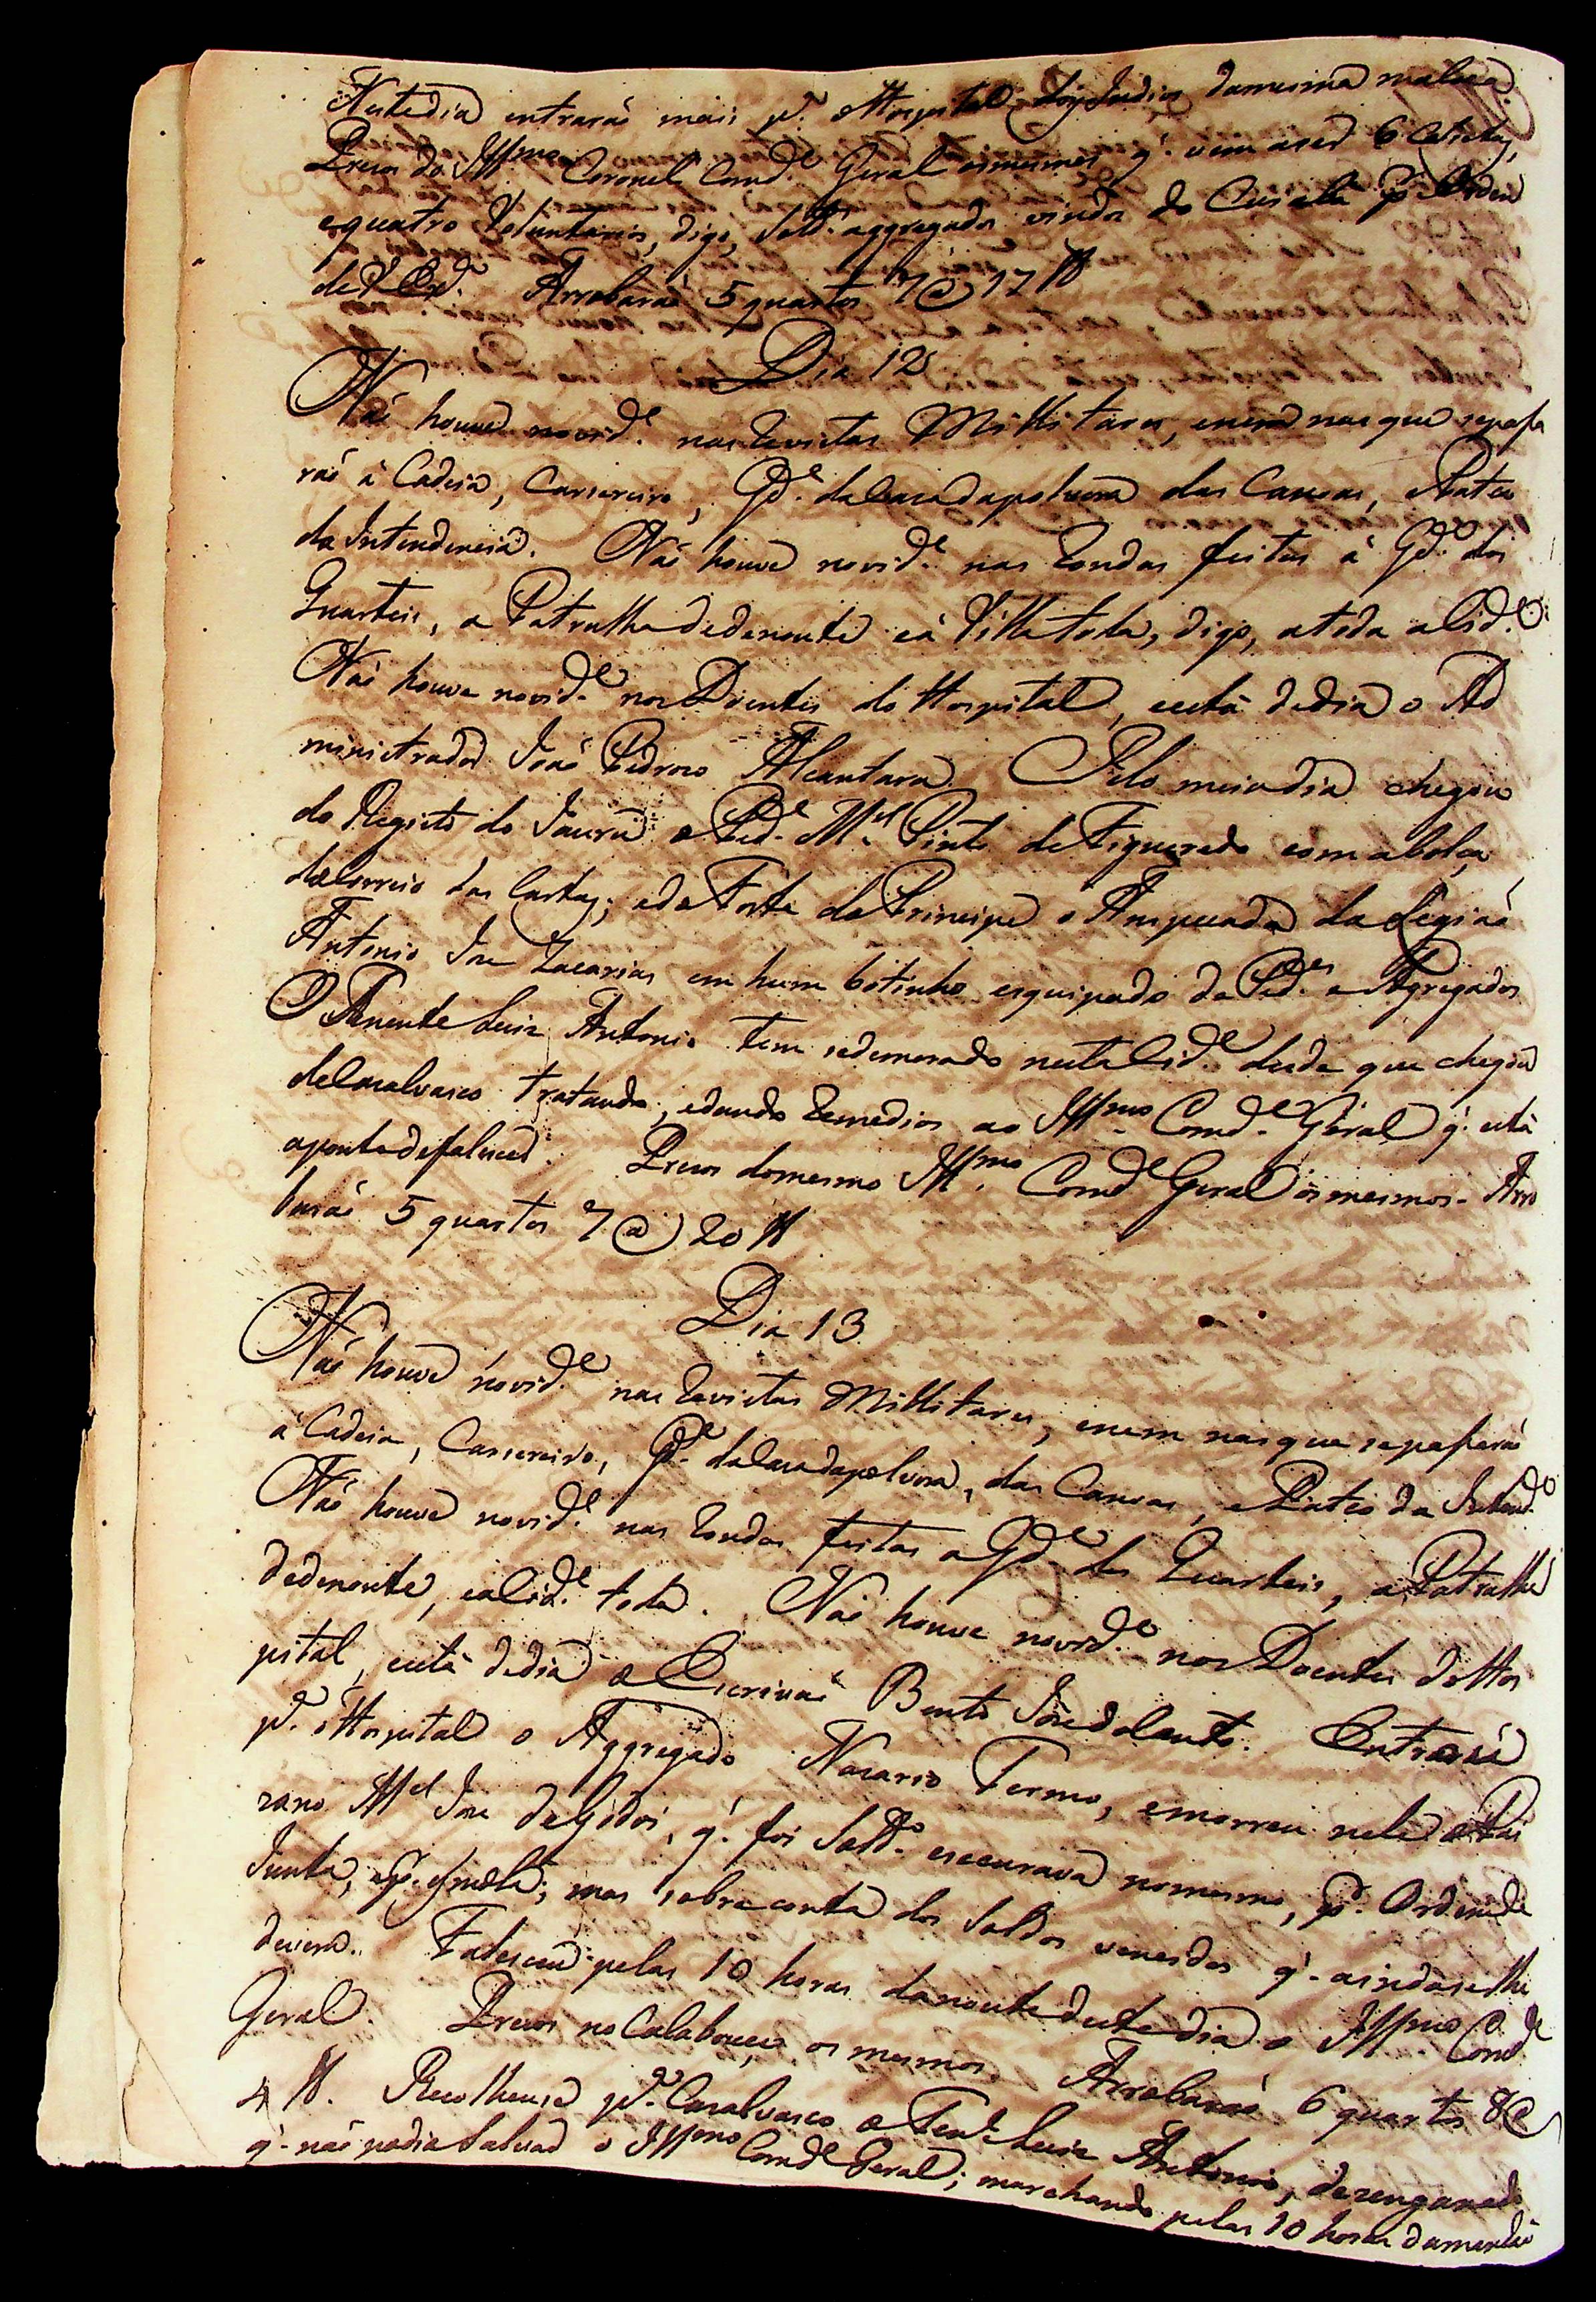 Nestedia entraraõ mais p.ª o Hospital dois Indios damesma maleca.
Prezos do Ill.mo Coronel Comd.e Geral osmesmos q̃. vem aser 6 Calcetas,
equatro Voluntarios, digo, Sold.os aggregados vindos do Cuiabá p.r Ordem
de S. Ex.ª Arrobaraõ 5 quartos 7@ 17 ℔
Dia 12
Naõ houve novid.e nas Revistas Millitares, enem nas que sepassa
raõ á Cadeia, Carsereiro, Gd.e daCasadapolvora das Canoas, ePateo
da Intendencia. Naõ houve novid.e nas Rondas feitas á Gd.e dos
Quarteis, a Patrulha dedenoute eá Villa toda, digo, atoda aCid.e
Naõ houve novid.e nos Doentes do Hospital, está dedia o Ad
ministrador Joaõ Pedrozo Alcantara. Pelo meiodia chegou
do Registo do Jaurú o Ped.e M.el Pinto de Figueredo com abolça
doCorreio das Cartas; edo Forte do Principe o Anspeçada da Legiaõ
Antonio Joze Zacarias em hum botinho esquipado de Ped.es e Agregados
O Tenente Luiz Antonio tem sedemorado nestaCid.e desde que chegou
deCasalvasco tratando, edando Remedios ao Ill.mo Comd.e Geral q̃. está
aponto defalecer. Prezos domesmo Ill.mo Comd.e Geral os mesmos - Arro
baraõ 5 quartos 7@ 20 ℔
Dia 13
Naõ houve novid.e nas Revistas Millitares, enem nas que sepassaraõ
á Cadeia, Carsereiro, Gd.e daCasadapolvora, das Canoas, ePateo da Intend.ª
Naõ houve novid.e nas Rondas feitas a Gd.e dos Quarteis, a Patrulha
dedenoute, eaCid.e toda. Naõ houve novid.e nos Doentes doHos
pital, está dedia o Escrivaõ Bento Joze do Canto. Entraraõ
p.ª o Hospital o Aggregado Nazario Termo, emorreu nele o Pai
zano M.el Joze de Godoi, q̃. foi Sold.o esecurava nomesmo, p.r Ordem da
Junta, mas sobre conta dos Soldos vencidos q̃. aindaselhe
devera. Faleceu pelas 10 horas danoute deste dia o Ill.mo Comd.e
Geral. Prezos no Calabouço os mesmos Arrobaraõ 6 quartos 8@
4 ℔. Recolheuse p.ª Casalvasco o Ten.e Luiz Antonio, dezenganado
q̃. naõ podia Salvar o Ill.mo Comd.e Geral; marchando pelas 10 horas damenhã